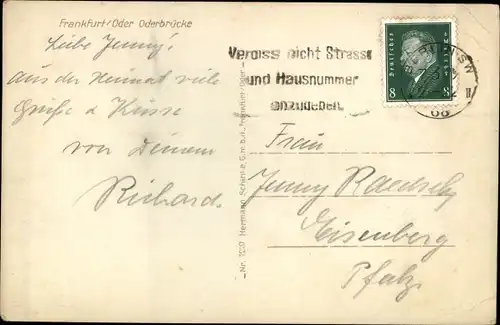 Frankfurt/Oder Oderbrücke
Liebe Jenny!
aus der Heimat viele
Grüße & Küsse
von Deinem
Richard.
Vergiss nicht Strasse
und Hausnummer
anzugeben
Deutsches Reich
8 8
BERLIN SW
68
Frau
Jenny
Eisenberg
Pfalz
Nr. 1019 Hermann G.m.b.H. Frankfurt/Oder